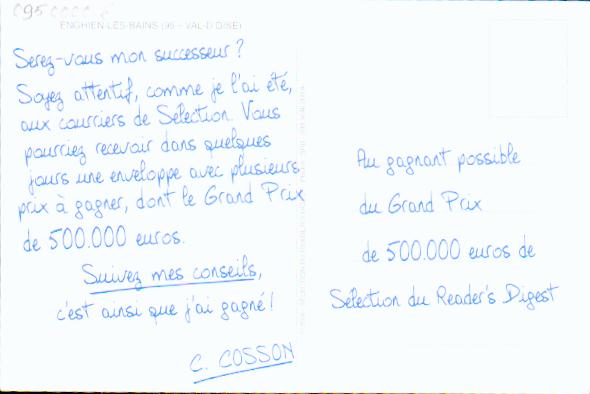 ENGHIEN-LES-BAINS (95 - VAL-D'OISE)
Serez-vous mon successeur ?
Soyez attentif, comme je l'ai été,
aux courriers de Sélection. Vous
pourriez recevoir dans quelques
jours une enveloppe avec plusieurs
prix à gagner, dont le Grand Prix
de 500.000 euros.
Suivez mes conseils,
c'est ainsi que j'ai gagné !
C. COSSON
Au gagnant possible
du Grand Prix
de 500.000 euros de
Sélection du Reader's Digest